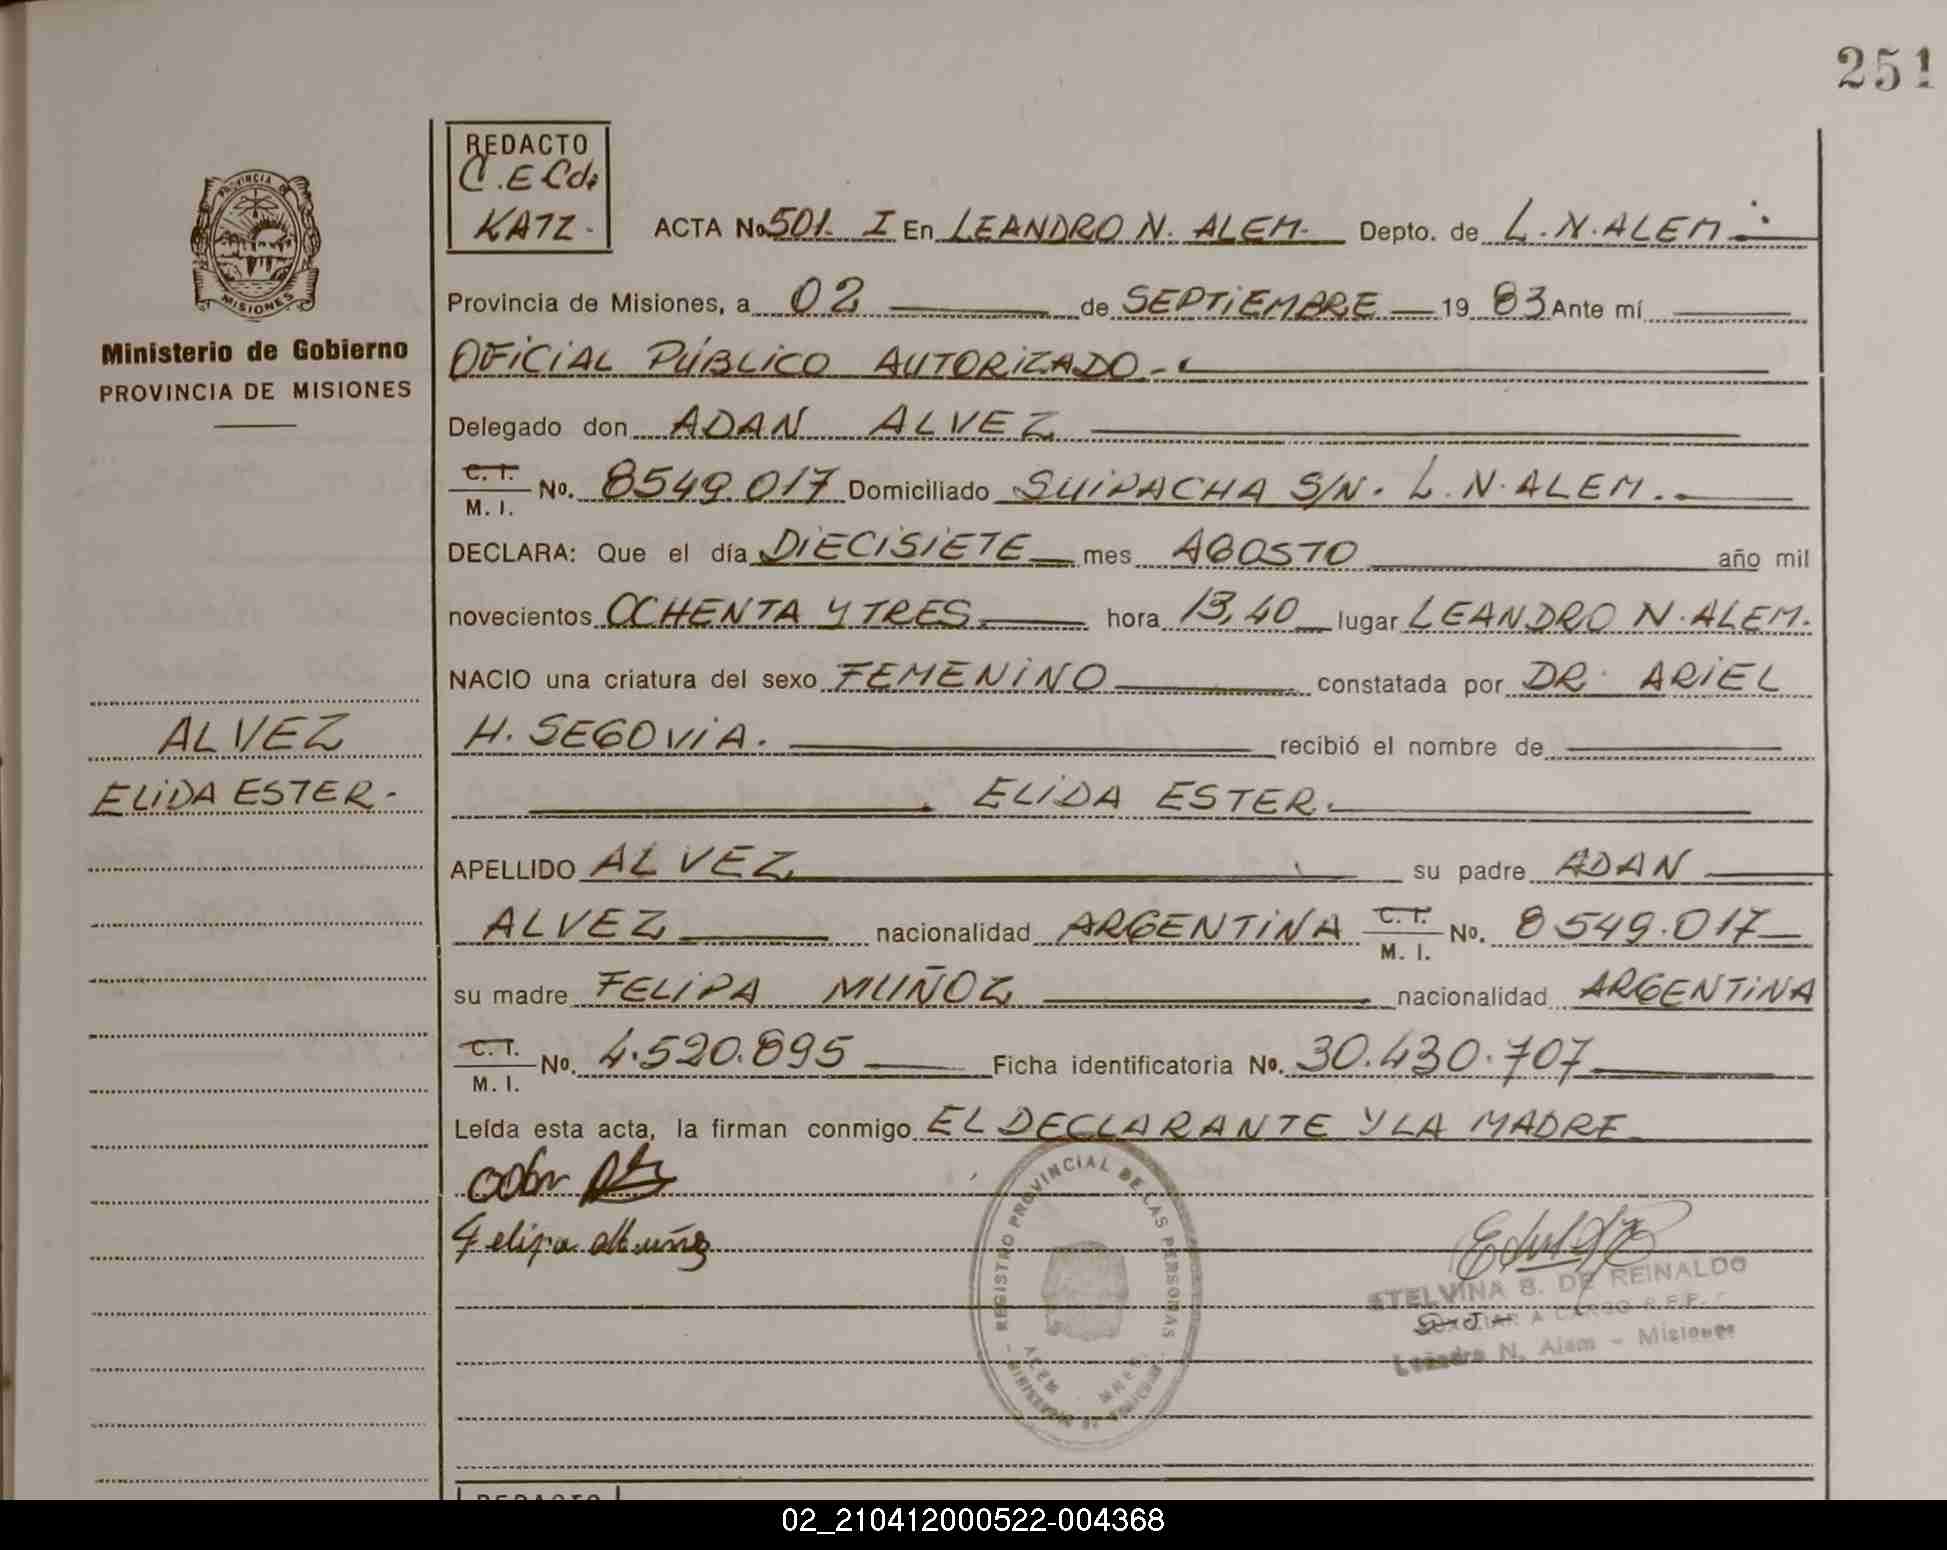 251
REDACTO
C. E C de
KATZ.-
PROVINCIA DE
MISIONES
Ministerio de Gobierno
PROVINCIA DE MISIONES
ACTA No 501. I En LEANDRO N. ALEM. Depto. de L.N.ALEM
Provincia de Misiones, a 02 de SEPTIEMBRE 19 83 Ante mí
OFICIAL PÚBLICO AUTORIZADO.-
Delegado don ADAN ALVEZ
C. I. / M. I. No. 8549.017 Domiciliado SUIPACHA S/N. L.N.ALEM.
DECLARA: Que el día DIECISIETE mes AGOSTO año mil
novecientos OCHENTA Y TRES hora 13,40 lugar LEANDRO N. ALEM.
NACIO una criatura del sexo FEMENINO constatada por DR. ARIEL
H. SEGOVIA. recibió el nombre de
ELIDA ESTER.
ALVEZ
ELIDA ESTER.-
APELLIDO ALVEZ su padre ADAN
ALVEZ nacionalidad ARGENTINA C. I. / M. I. No. 8549.017
su madre FELIPA MUÑOZ nacionalidad ARGENTINA
C. I. / M. I. No. 4.520.895 Ficha identificatoria No. 30.430.707
Leída esta acta, la firman conmigo EL DECLARANTE Y LA MADRE
Felipa Muñoz
REGISTRO PROVINCIAL DE LAS PERSONAS
STELVINA B. DE REINALDO
AUXILIAR A CARGO R.P.P.
Leandro N. Alem - Misiones
REDACTO
02_210412000522-004368